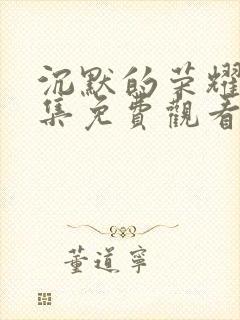 沉默的荣耀
集免費觀看
董道寧